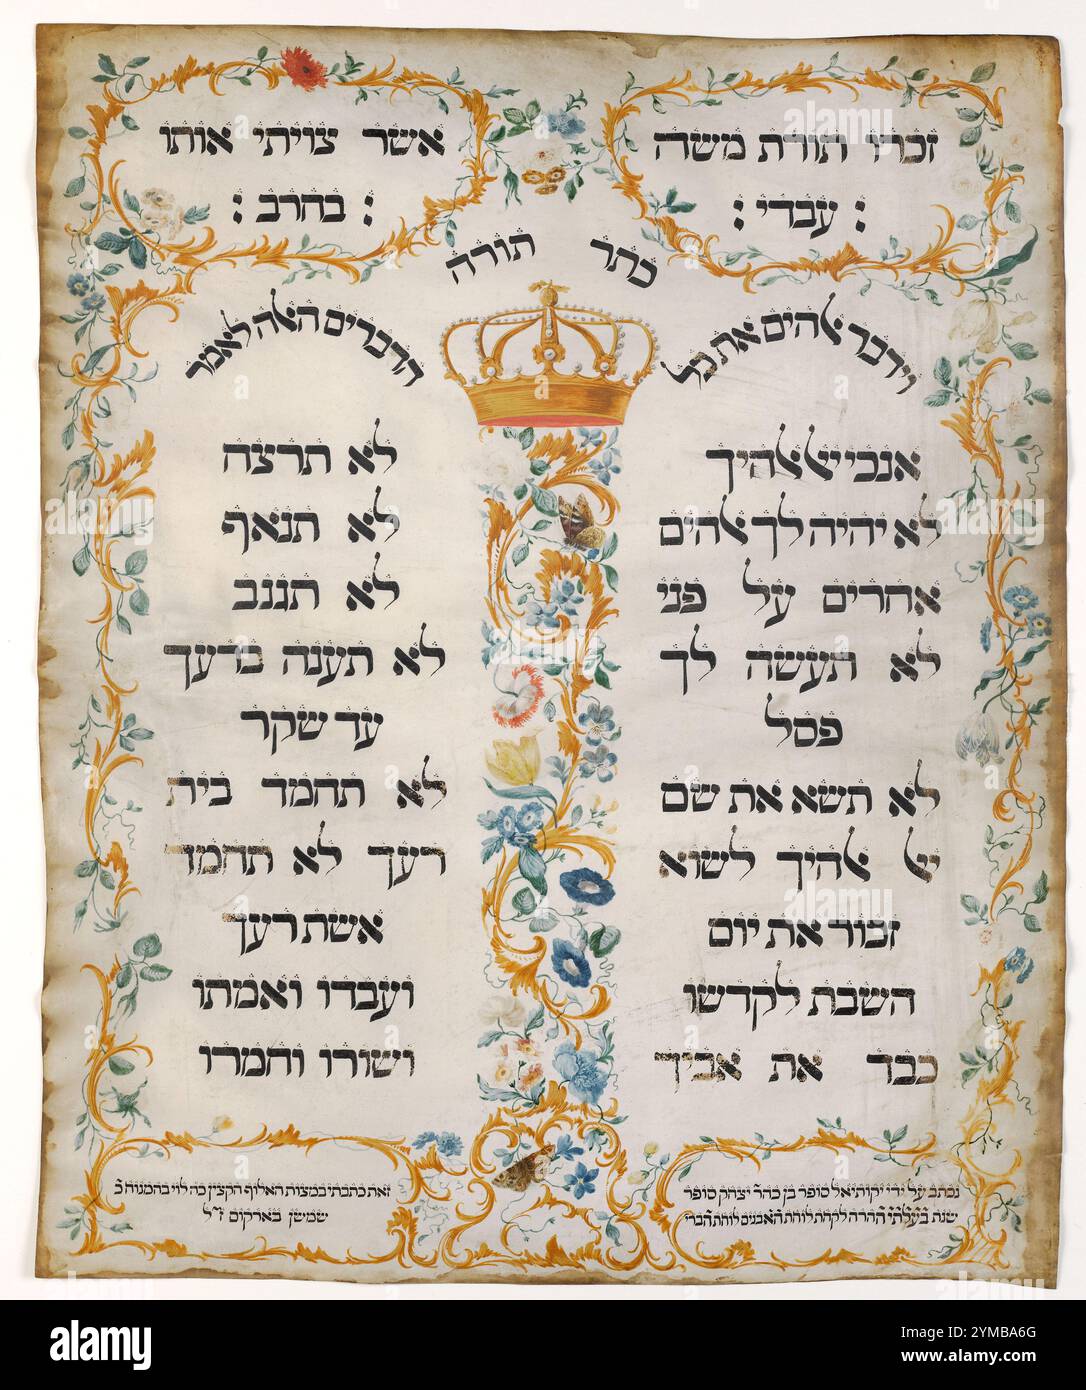 זכרו תורת משה
עבדי :
אשר צויתי אותו
: בחרב :
כתר תורה
וידבר אלהים את כל
הדברים האלה לאמר
אנכי יי אלהיך
לא יהיה לך אלהים
אחרים על פני
לא תעשה לך
פסל
לא תשא את שם
יי אלהיך לשוא
זכור את יום
השבת לקדשו
כבד את אביך
לא תרצח
לא תנאף
לא תגנב
לא תענה ברעך
עד שקר
לא תחמד בית
רעך לא תחמד
אשת רעך
ועבדו ואמתו
ושורו וחמרו
נכתב על ידי יקותיאל סופר בן כהר יצחק סופר
שנת בעלתי ההרה לקחת לוחת האבנים לוחת הברי
זאת כתבתי במצות האלוף הקצין כה לוי בהמנוח כ
שמשן בארקום ז״ל
alamy
Image ID: 2YMBA6G
www.alamy.com